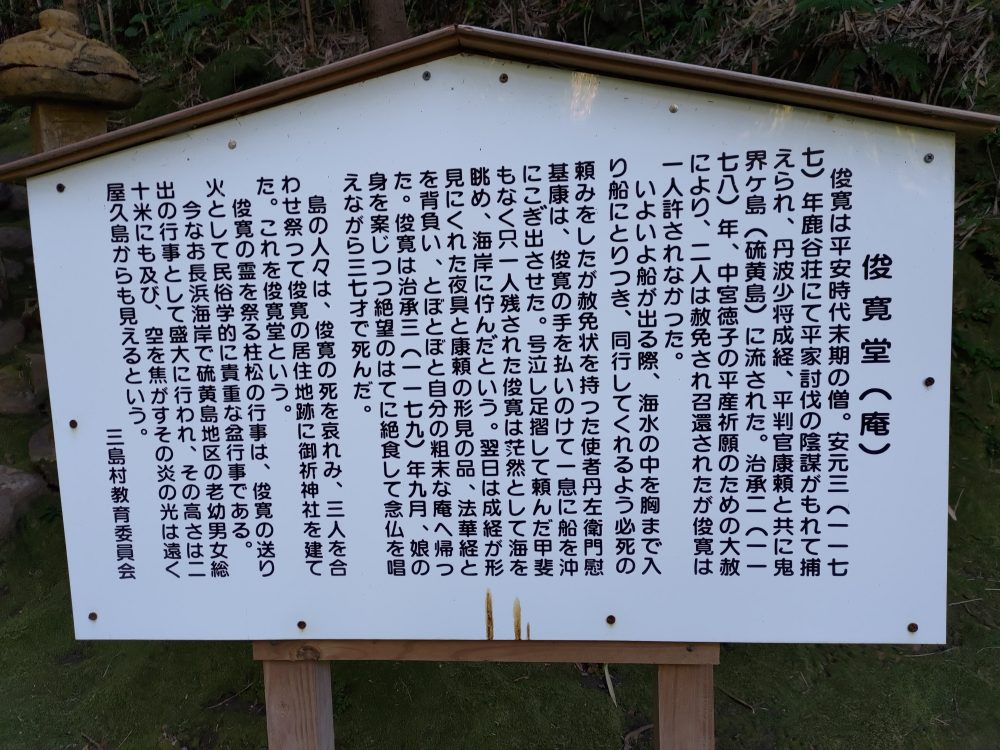 俊寛堂(庵)
俊寛は平安時代末期の僧。安元三(一一七
七)年鹿谷荘にて平家討伐の陰謀がもれて捕
えられ、丹波少将成経、平判官康頼と共に鬼
界ケ島(硫黄島)に流された。治承二(一一
七八)年、中宮徳子の平産祈願のための大赦
により、二人は赦免され召還されたが俊寛は
一人許されなかった。
いよいよ船が出る際、海水の中を胸まで入
り船にとりつき、同行してくれるよう必死の
頼みをしたが赦免状を持つた使者丹左衛門慰
基康は、俊寛の手を払いのけて一息に船を沖
にこぎ出させた。号泣し足摺して頼んだ甲斐
もなく只一人残された俊寛は茫然として海を
眺め、海岸に佇んだという。翌日は成経が形
見にくれた夜具と康頼の形見の品、法華経と
を背負い、とぼとぼと自分の粗末な庵へ帰っ
た。俊寛は治承三(一一七九)年九月、娘の
身を案じつつ絶望のはてに絶食して念仏を唱
えながら三七才で死んだ。
島の人々は、俊寛の死を哀れみ、三人を合
わせ祭つて俊寛の居住地跡に御祈神社を建て
た。これを俊寛堂という。
俊寛の霊を祭る柱松の行事は、俊寛の送り
火として民俗学的に貴重な盆行事である。
今なお長浜海岸で硫黄島地区の老幼男女総
出の行事として盛大に行われ、その高さは二
十米にも及び、空を焦がすその炎の光は遠く
屋久島からも見えるという。
三島村教育委員会